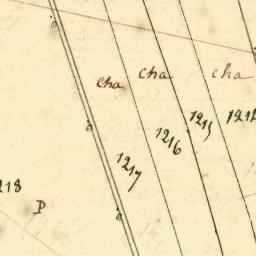 cha cha cha
1215 1216 1217
218
P